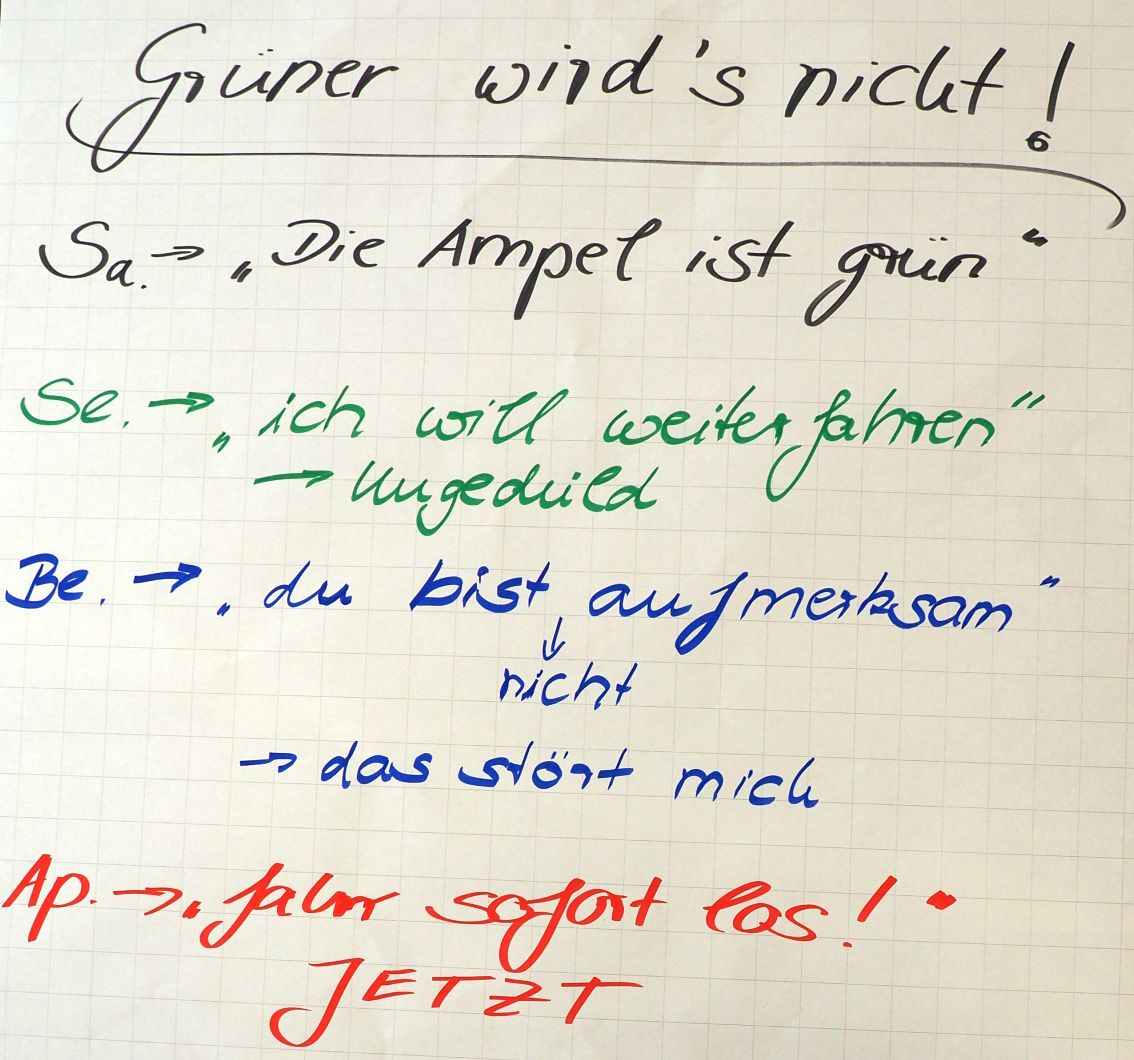 Grüner wird's nicht!
Sa. → „Die Ampel ist grün“
Se. → „ich will weiterfahren“
→ Ungeduld
Be. → „du bist aufmerksam“
↓
nicht
→ das stört mich
Ap. → „fahr sofort los!“
JETZT